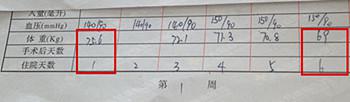 入量(毫升)
血压(mmHg) 140/90 140/90 140/90 150/90 150/90 150/90
体 重(Kg) 75.6 72.1 71.3 70.8 69
手术后天数
住院天数 1 2 3 4 5 6
第 1 周